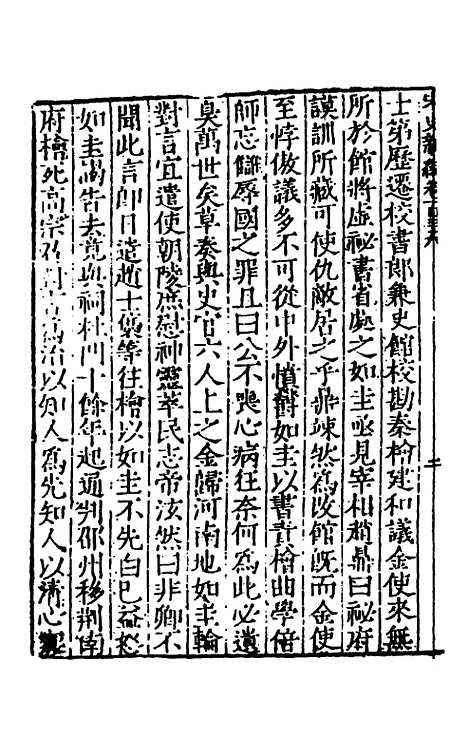 宋史新編卷一百三六
士第歷遷校書郎兼史館校勘秦檜建和議金使來無
所於館將虛祕書省處之如圭亟見宰相趙鼎曰祕府
謨訓所藏可使仇敵居之乎鼎竦然爲改館旣而金使
至悖傲議多不可從中外憤鬱如圭以書責檜曲學倍
師忘讎辱國之罪且曰公不喪心病狂奈何爲此必遺
臭萬世矣草奏與史官六人上之金歸河南地如圭輪
對言宜遣使朝陵庶慰神靈萃民志帝泫然曰非卿不
聞此言卽日遣趙士㒟等往檜以如圭不先白已益怒
如圭謁告去竟與祠杜門十餘年起通判邵州移荆南
府檜死高宗召對言爲治以知人爲先知人以淸心寡
二